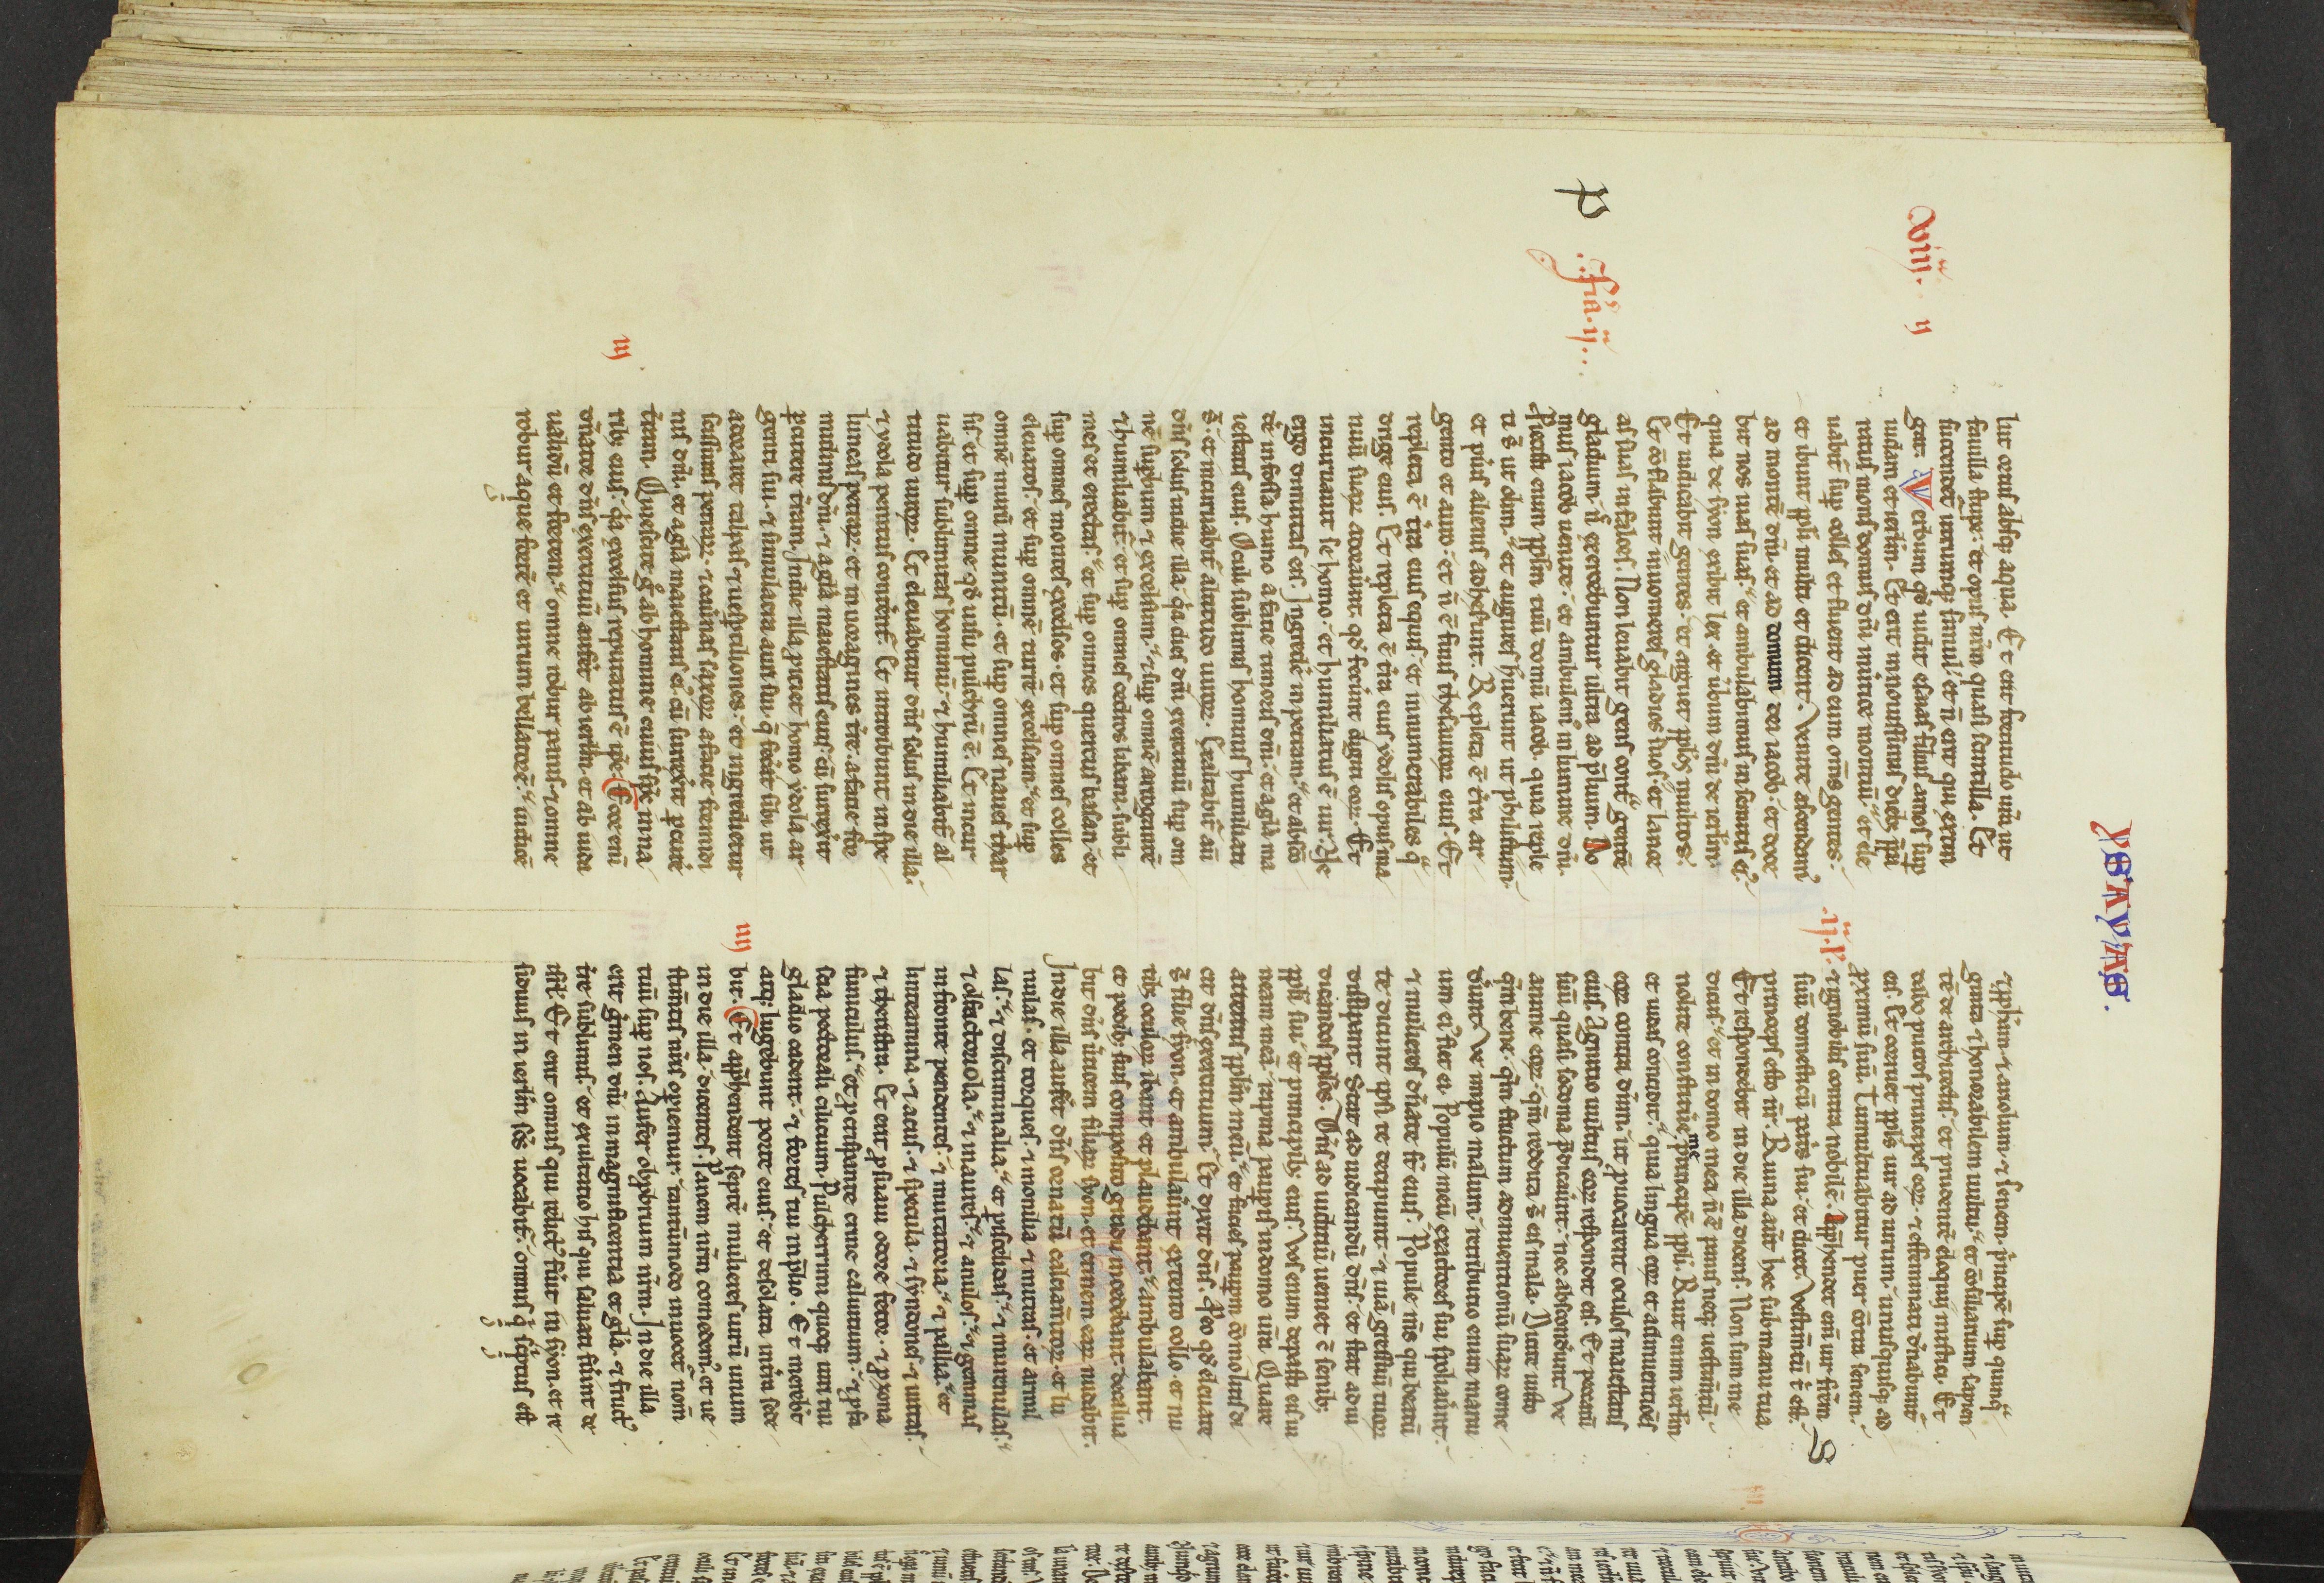 YSAYAS.
viij. ij
lut ortus absq; aqua. Et erit fortitudo ur̄a ut
fauilla stupe: et opus ur̄m quasi scintilla. Et
succendet̄ utrumq; simul: et n̄ erit qui extin
guat. Verbum qd̄ uidit esaias filius amos sup̄
iudam et ierl̄m. Et erit in nouissimis dieb; p̄pa
ratus mons domus dn̄i in uertice montiū. et ele
uabit̄ sup̄ colles et fluent ad eum om̄s gentes.
et ibunt pp̄li multi et dicent. Venite ascendam᷒
ad montē dn̄i et ad domum dei iacob. et doce
bit nos uias suas. et ambulabimus in semitis ei᷒.
quia de syon exibit lex. et ūbum dn̄i de ierl̄m.
Et iudicabit gentes. et arguet pp̄l̄os multos.
Et ɔflabunt in uomeres gladios suos. et lance
as suas in falces. Non leuabit gens cont̄ gentē
gladium. n̄ exercebuntur ultra ad p̄lium. Do
mus iacob uenite. et ambulem᷒ in lumine dn̄i.
P .fīa. ij.
Proiecisti enim pp̄l̄m tuū domū iacob. quia reple
ti s̄t ut olim. et augures habuerunt ut philistiim.
et pūis alienis adheserunt. Repleta ē t̄ra ar
gento et auro. et n̄ ē finis thesauroꝝ eius. Et
repleta ē t̄ra eius equis. et innumerabiles q
drige eius. Et repleta ē t̄ra eius ydolis. opus ma
nuū suaꝝ adorauerunt. qd̄ fecerunt digiti eoꝝ. Et
incuruauit se homo. et humiliatus ē uir. Ne
ergo dimittas eis. Ingredere in petram. et abscō
dere in fossa humo a facie timoris dn̄i. et a gl̄a ma
iestatis eius. Oculi sublimes hominis humiliati
s̄t. et incuruabit̄ altitudo uiroꝝ. Exaltabit̄ aū
dn̄s solus in die illa. quia dies dn̄i exercituū sup̄ om
nē supbum ⁊ excelsum. ⁊ sup̄ omnē arrogantē
⁊ humiliabit̄. et sup̄ omnes cedros libani subli
mes et erectas. et sup̄ omnes quercus basan. et
sup̄ omnes montes excelsos. et sup̄ omnes colles
eleuatos. et sup̄ omnē turrē excelsam. et sup̄
omnē murū munitū. et sup̄ omnes naues thar
sis. et sup̄ omne qd̄ uisu pulchrū ē. Et incur
uabitur sublimitas hominū. ⁊ humiliabit̄ al
titudo uiroꝝ. Et eleuabitur dn̄s solus in die illa.
⁊ ydola penitus conterent̄. Et introibunt in spe
luncas petraꝝ. et in uoragines t̄re. a facie for
midinis dn̄i. ⁊ a gl̄a maiestatis eius cū surrexerit
percutere t̄ram. In die illa piciet homo ydola ar
genti sui. ⁊ simulacra auri sui. q̄ fecerat sibi ut
adoraret talpas ⁊ uesptiliones. et ingredietur
scissuras petraꝝ. ⁊ cauernas saxoꝝ a facie formidi
nis dn̄i. et a gl̄a maiestatis ei᷒. cū surrexerit percutere
t̄ram. Quiescite g̊ ab homine cuius sp̄c in na
iij
rib; eius. quia excelsus reputatus ē ip̄e. Ecce enī
dn̄ator dn̄s exercituū auferet ab ierl̄m. et ab iuda
ualidū et fortem. omne robur panis. ⁊ omne
robur aque. fortē et uirum bellatorē. iudicē
⁊ pp̄h̄am. ⁊ ariolum. ⁊ senem. p̄ncipē sup̄ quinq
ginta ⁊ honorabilem uultu. et ɔsiliarium. sapien
tē de architectis. et prudentē eloquij mistici. Et
dabo pueros principes eoꝝ. ⁊ effeminati dn̄abunt̄
eis. Et corruet pp̄ls uir ad uirum. unusquisq; ad
proximū suū. Tumultuabitur puer ɔtra senem.
.ij. P. ⁊ ignobilis contra nobilē. App̄hendet enī uir fr̄em
suū domesticū pr̄is sui. et dicet. Vestim̄tū t̄ est.
princeps esto nr̄. Ruina aūt hec sub manu tua
Et respondebit in die illa dicens. Non sum me
dicus. et in domo mea n̄ ē panis neq; uestim̄tū.
nolite constituere me principē pp̄li. Ruit enim ierl̄m
et iudas concidit. quia lingua eoꝝ et adinuentiōes
eoꝝ contra dn̄m. ut p̱uocarent oculos maiestatis
eius. Agnitio uultus eoꝝ respondit eis. Et peccatū
suū quasi sodoma p̄dicauerunt. nec absconderunt. Ve
anime eoꝝ. qm̄ reddita s̄t eis mala. Dicite iusto
qm̄ bene. qm̄ fructum adinuentionū suaꝝ come
dunt. Ve impio malum. retributio enim manu
um ei᷒ fiet ei. Populū meū exactores sui spoliauerunt.
⁊ mulieres dn̄ate s̄t eius. Popule ms̄ qui beatū
te dicunt ipsi te decipiunt. ⁊ uiā gressuū tuoꝝ
dissipant. Stat ad iudicandū dn̄s. et stat ad iu
dicandos pp̄l̄os. Dn̄s ad iudiciū ueniet c̄ senib;
pp̄li sui et principib; eius. Vos enim depasti estis ui
neam meā. rapina paupis in domo ur̄a. Quare
atteritis pp̄l̄m meū. et facies pauperum cōmolitis di
cit dn̄s exercituum. Et dixit dn̄s. Pro eo qd̄ eleuate
s̄t filie syon. et ambulauerunt extento collo. et nu
tib; oculoꝝ ibant et plaudebant. ambulabant.
et pedib; suis composito gradu incedebant. decalua
bit dn̄s ūticem filiaꝝ syon. et crinem eaꝝ nudabit.
In die illa auferet dn̄s ornatū calciamtoꝝ. et lu
nulas. et torques. ⁊ monilia ⁊ mitras. et armil
las. ⁊ discriminalia. et p̄iscelidas. ⁊ murenulas.
⁊ olfactoriola. ⁊ inaures. ⁊ anulos. ⁊ gemmas
in fronte pendentes. ⁊ mutatoria. ⁊ pallia. et
linteamina. ⁊ acus. ⁊ specula. ⁊ syndones. ⁊ uittas.
⁊ theristra. Et erit p̱ suaui odore fetor. ⁊ p̱ zona
funiculus. et p̱ crispante crine caluitium. ⁊ p̱ fa
scia pectorali cilicium. Pulcherrimi quoq; uiri tui
gladio cadent. ⁊ fortes tui in p̄lio. Et merebūt
atq; lugebunt porte eius. et desolata in t̄ra sede
iiij
bit. Et app̄hendent septē mulieres uirū unum
in die illa dicentes. Panem nr̄m comedem᷒. et ue
stim̄tis nr̄is opiemur. tantūmodo inuocet̄ nom̄
tuū sup̄ nos. Aufer obprobrium nr̄m. In die illa
erit gmen dn̄i in magnificentia et gl̄a. ⁊ fruct᷒
t̄re sublimis. et exultatio his qui saluati fuerint de
isr̄l. Et erit omnis qui relict᷒ fuerit in syon. et re
siduus in ierl̄m. sc̄s uocabit̄. omnis q̄ scriptus est